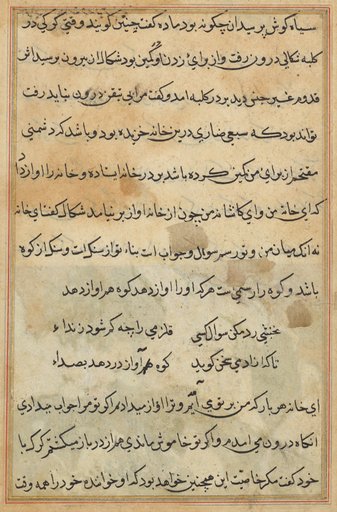 سیاه کوش پرسید ان چکونه بود ماده کفت چنین کویند وقتی کرکی در
کلبه شکالی درون رفت و از برای زدن او کمین بود شکال از بیرون برسید اثر
قدوم غیر جنس دید بر در کلبه امد و کفت مرا بی تیقن درون نباید رفت
تواند بود که سبعی ضاری درین خانه خزیده بود و باشد که دشمنی
از برای من کمین کرده باشد بر در خانه ایستاده و خانه را اواز داد
که ای خانه من وای کاشانه من چون از خانه اواز بر نیامد شکال کفت ای خانه
نه انکه میان من و تو رسم سوال و جواب است بناء تو از سنک است و سنک از کوه
باشد و کوه را رسمی ست هر که او را اواز دهد کوه هم اواز دهد
نخشبی رد مکن سوال کسی قلزمی را چه کر شود ز نداء
سخن کوید کوه هم آواز در دهد بصداء
ای خانه هر بار که من بر تو می آیم و ترا اواز میدادم اکر تو مرا جواب میدادی
انکاه درون می امدم و اکر تو خاموش ماندی هم از در باز میکشتم کرک با
خود کفت مکر خاصیت این همچنین خواهد بود که او خواننده خود را همه وقت